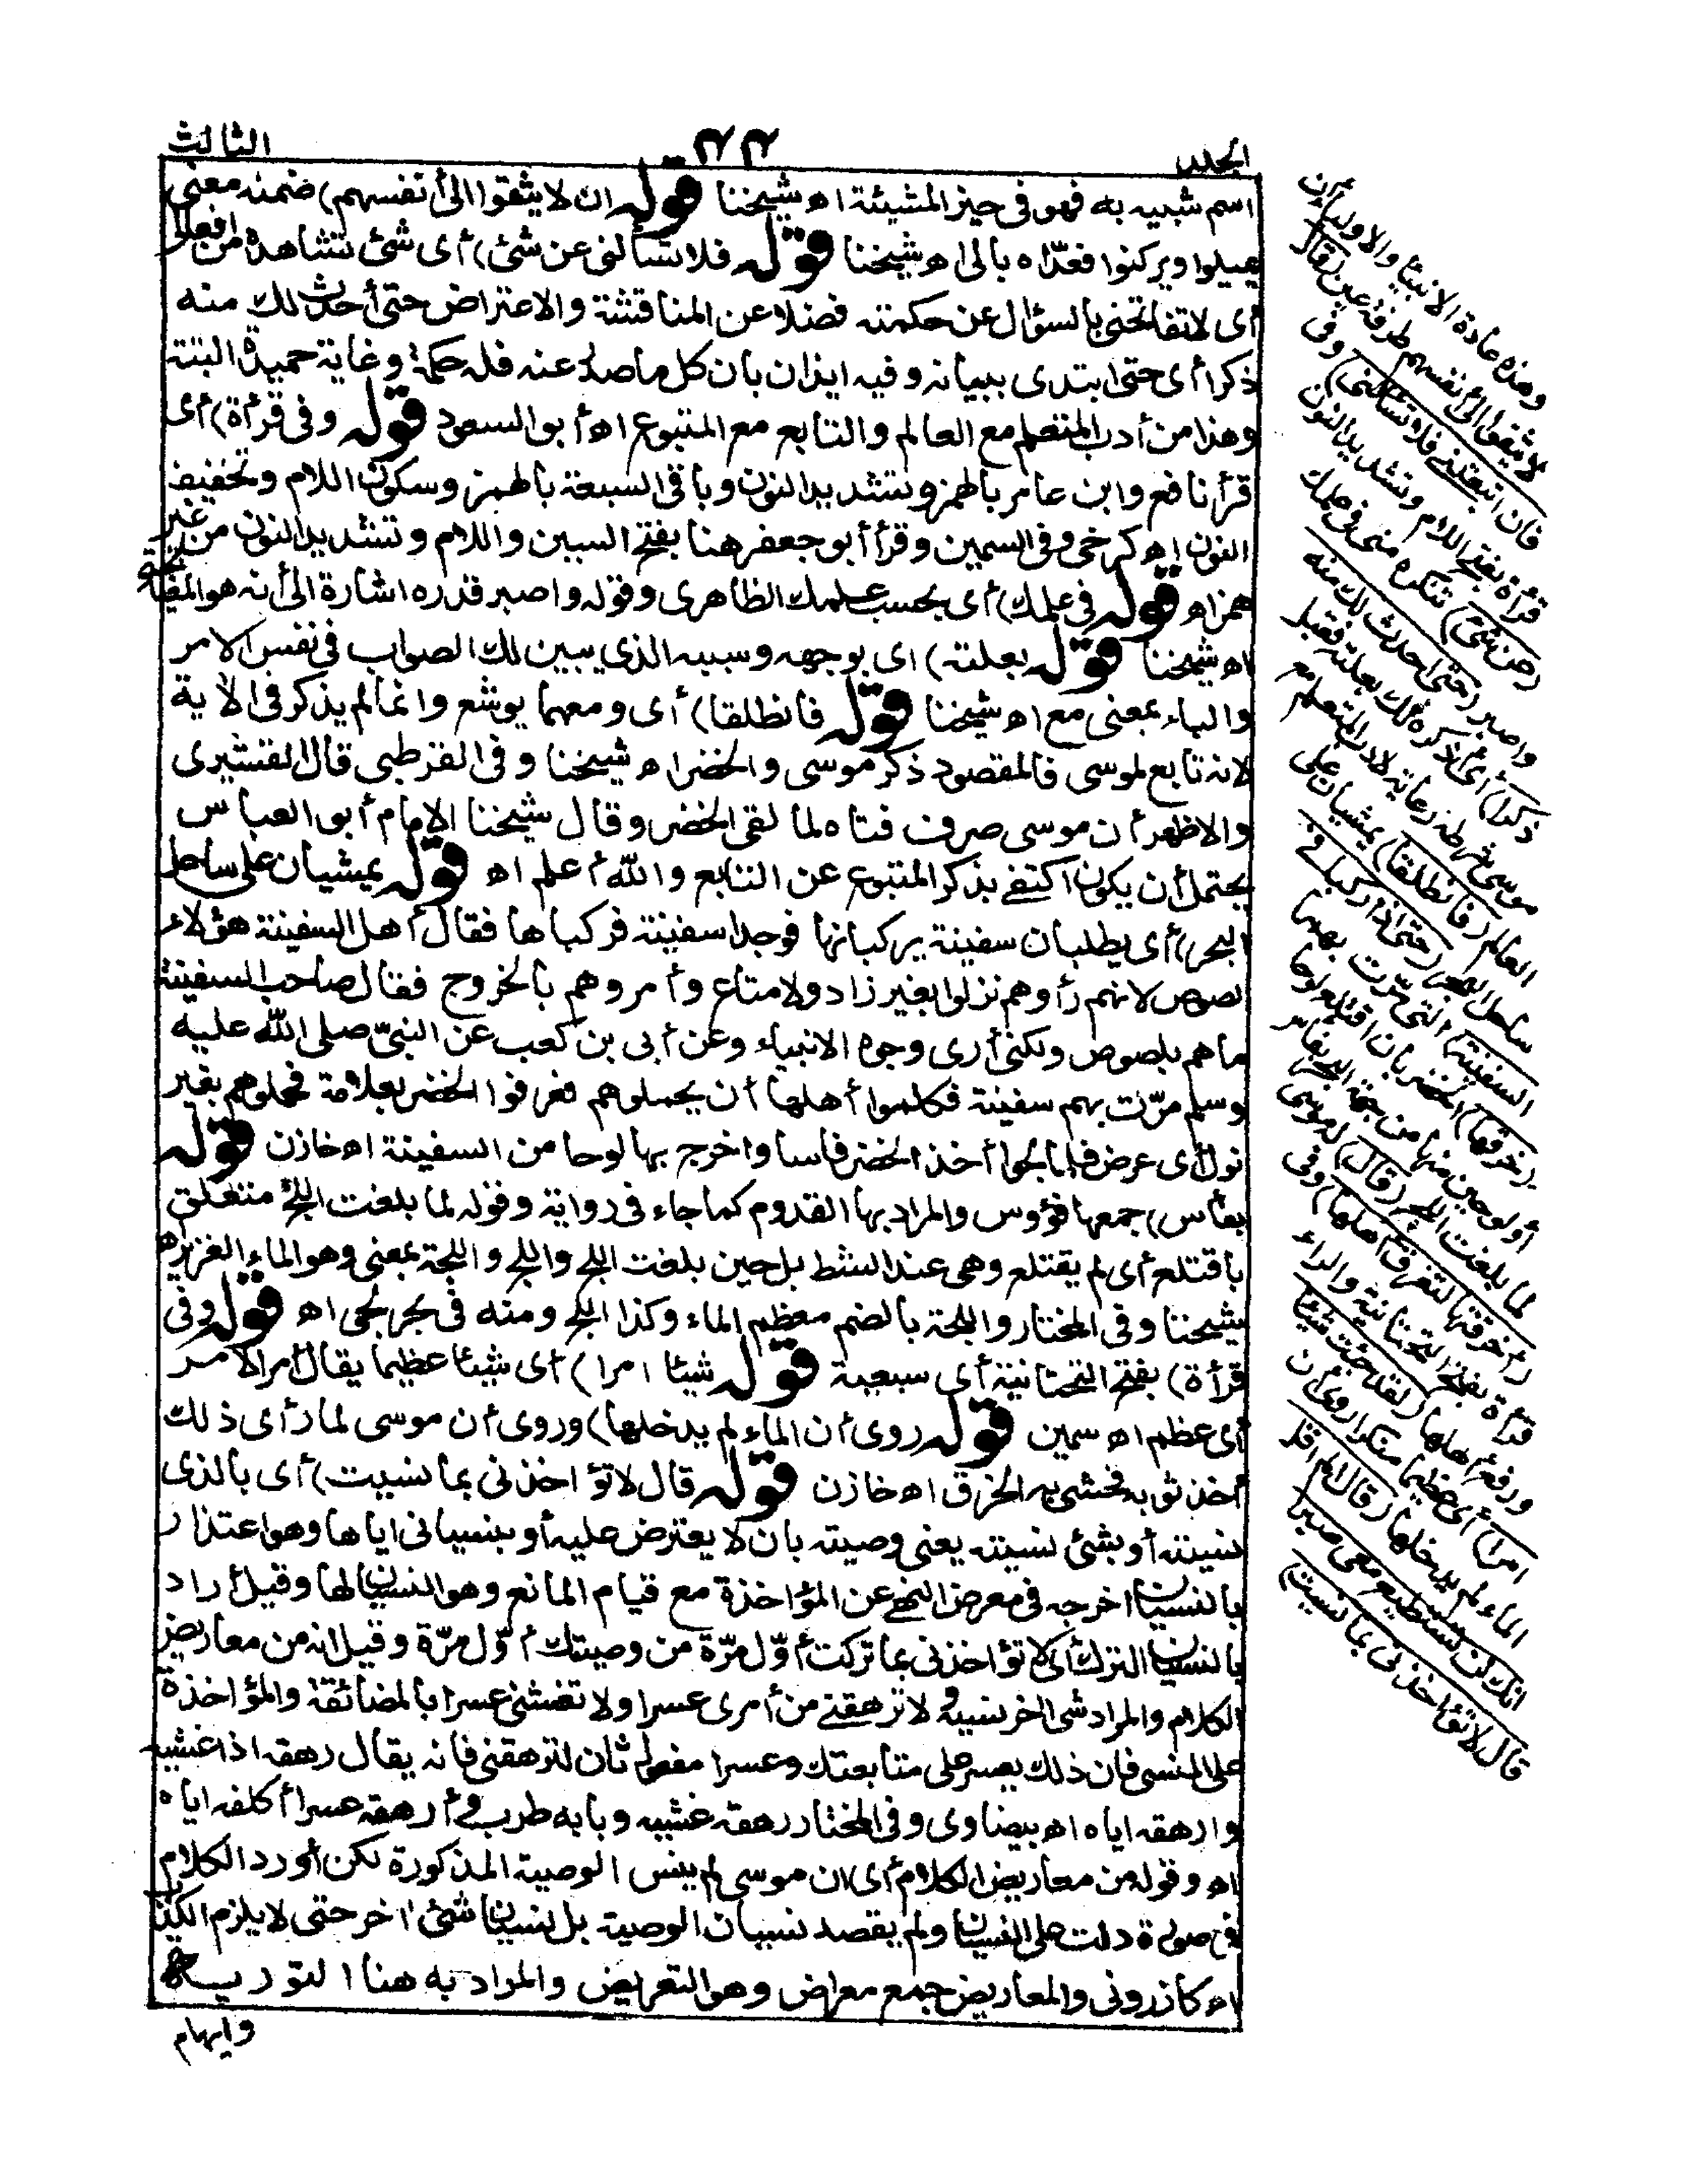 الجلد
٣٣
الثالث
اسم شبيه به فهو في حيز المشيئة اه شيخنا قوله ان لا يثقوا الى أنفسهم) ضمنه معنى
يميلوا ويركنوا فعدّاه بالى اه شيخنا قوله فلا تسألنى عن شئ) أى شئ تشاهده من افعالى
أى لا تفاتحنى بالسؤال عن حكمته فضلا عن المناقشة والاعتراض حتى أحدث لك منه
ذكرا أى حتى ابتدى ببيانه وفيه ايذان بان كل ما صدر عنه فله حكمة وغاية حميدة البتة
وهذا من أدب المتعلم مع العالم والتابع مع المتبوع اه أبو السعود قوله وفى قرأة) أى
قرأ نافع وابن عامر بالهمز وتشديد النون وباقى السبعة بالهمز وسكون اللام وتخفيف
النون اه كرخى وفى السمين وقرأ أبو جعفر هنا بفتح السين واللام وتشديد النون من غير
همز اه قوله فى علمك) أى بحسب علمك الظاهرى وقوله واصبر قدره اشارة الى أنه هو المفاتحة
اه شيخنا قوله بعلته) اى بوجهه وسببه الذي يبين لك الصواب فى نفس الامر
والباء بمعنى مع اه شيخنا قوله فانطلقا) أى ومعهما يوشع وانما لم يذكر فى الاية
لانه تابع لموسى فالمقصود ذكر موسى والخضر اه شيخنا وفى القرطبى قال القشيرى
والاظهر أن موسى صرف فتاه لما لقى الخضر وقال شيخنا الامام أبو العباس
يحتمل أن يكون اكتفے بذكر المتبوع عن التابع والله أعلم اه قوله يمشيان على ساحل
البحر) أى يطلبان سفينة يركبانها فوجدا سفينة فركباها فقال أهل السفينة هؤلاء
لصوص لانهم رأوهم نزلوا بغير زاد ولا متاع وأمروهم بالخروج فقال صاحب السفينة
ماهم بلصوص ولكنى أرى وجوه الانبياء وعن أبى بن كعب عن النبىّ صلى الله عليه
وسلم مرّت بهم سفينة فكلموا أهلها أن يحملوهم فعرفوا الخضر بعلامة فحملوهم بغير
نول أى عرض فلما لججوا أخذ الخضر فاسا واخرج بها لوحا من السفينة اه خازن قوله
بفأس) جمعها فؤوس والمراد بها القدوم كما جاء فى رواية وقوله لما بلغت اللج متعلق
باقتلع أى لم يقتلع وهى عند الشط بل حين بلغت اللج واللج واللجة بمعنى وهو الماء الغزير اه
شيخنا وفى المختار واللجة بالضم معظم الماء وكذا اللج ومنه فى بحر لجى اه قوله وفى
قرأة) بفتح التحتانية أى سبعية قوله شيئا امرا) أى شيئا عظيما يقال أمر الامر
أى عظم اه سمين قوله روى أن الماء لم يدخلها) وروى أن موسى لما رأى ذلك
أخذ ثوبه فحشى به الخرق اه خازن قوله قال لا تؤاخذنى بما نسيت) أى بالذى
نسيته أو بشئ نسيته يعنى وصيته بان لا يعترض عليه أو بنسيانى اياها وهو اعتذار
بالنسيان اخرجه فى معرض النهے عن المؤاخذة مع قيام المانع وهو النسيان لها وقيل أراد
بالنسيان الترك أى لا تؤاخذنى بما تركت أوّل مرّة من وصيتك أوّل مرّة وقيل انه من معاريض
الكلام والمراد شئ اخر نسيه ولا ترهقنے من أمرى عسرا ولا تغشنى عسرا بالمضائقة والمؤاخذة
على المنسى فان ذلك يعسر على متابعتك وعسرا مفعول ثان لترهقنى فانه يقال رهقه اذا غشيه
وارهقه اياه اه بيضاوى وفى المختار رهقه غشيه وبابه طرب وأرهقه عسرا أكلفه اياه
اه وقوله من معاريض الكلام أى ان موسى لم ينس الوصية المذكورة لكن أورد الكلام
فى صورة دلت على النسيان ولم يقصد نسيان الوصية بل نسيان شئ اخر حتى لا يلزم الكذب
اه كازرونى والمعاريض جمع معراض وهو التعريض والمراد به هنا التورية
وايهام
وهذه عادة الانبيا والاولياء أن
لا يثقوا الى أنفسهم طرفة عين (قال
فان اتبعتنے فلا تسألنى) وفى
قرأة بفتح اللام وتشديد النون
(عن شئ) تنكره منى فى علمك
واصبر (حتى احدث لك منه
ذكرا) أى أذكره لك بعلته فقبل
موسى شرطه رعاية لادب المتعلم مع
العالم (فانطلقا) يمشيان على
ساحل البحر (حتى اذا ركبا فى
السفينة) التى مرّت بهما
(خرقها) الخضر بان اقتلع لوحا
أو لوحين منها من جهة البحر بفأس
لما بلغت اللج (قال) له موسى
(أخرقتها لتغرق أهلها) وفى
قرأة بفتح التحتانية والراء
ورفع أهلها (لقد جئت شيئا
امرا) أى عظيما منكرا روى أن
الماء لم يدخلها (قال ألم اقل
انك لن تستطيع معى صبرا
قال لا تؤاخذنى بما نسيت)